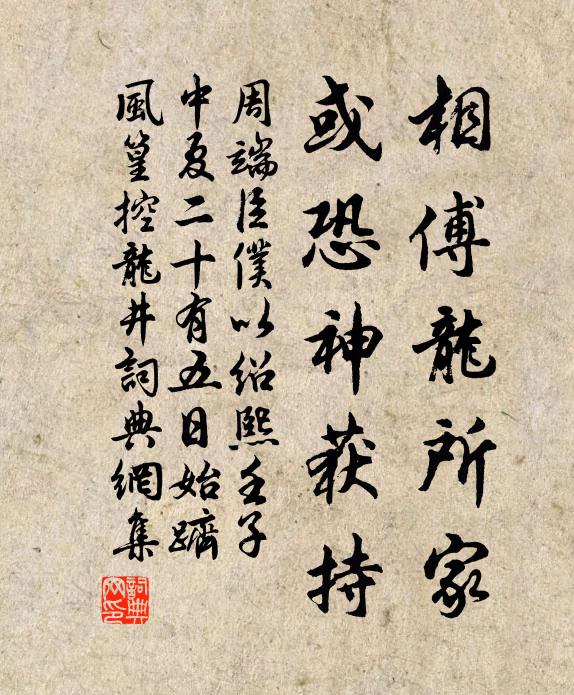 相傅龍所家
或恐神莪持
周端臣僕以紹熙壬子
中夏二十有五日始躋
風篁控龍井詞典網集
詞典
网印